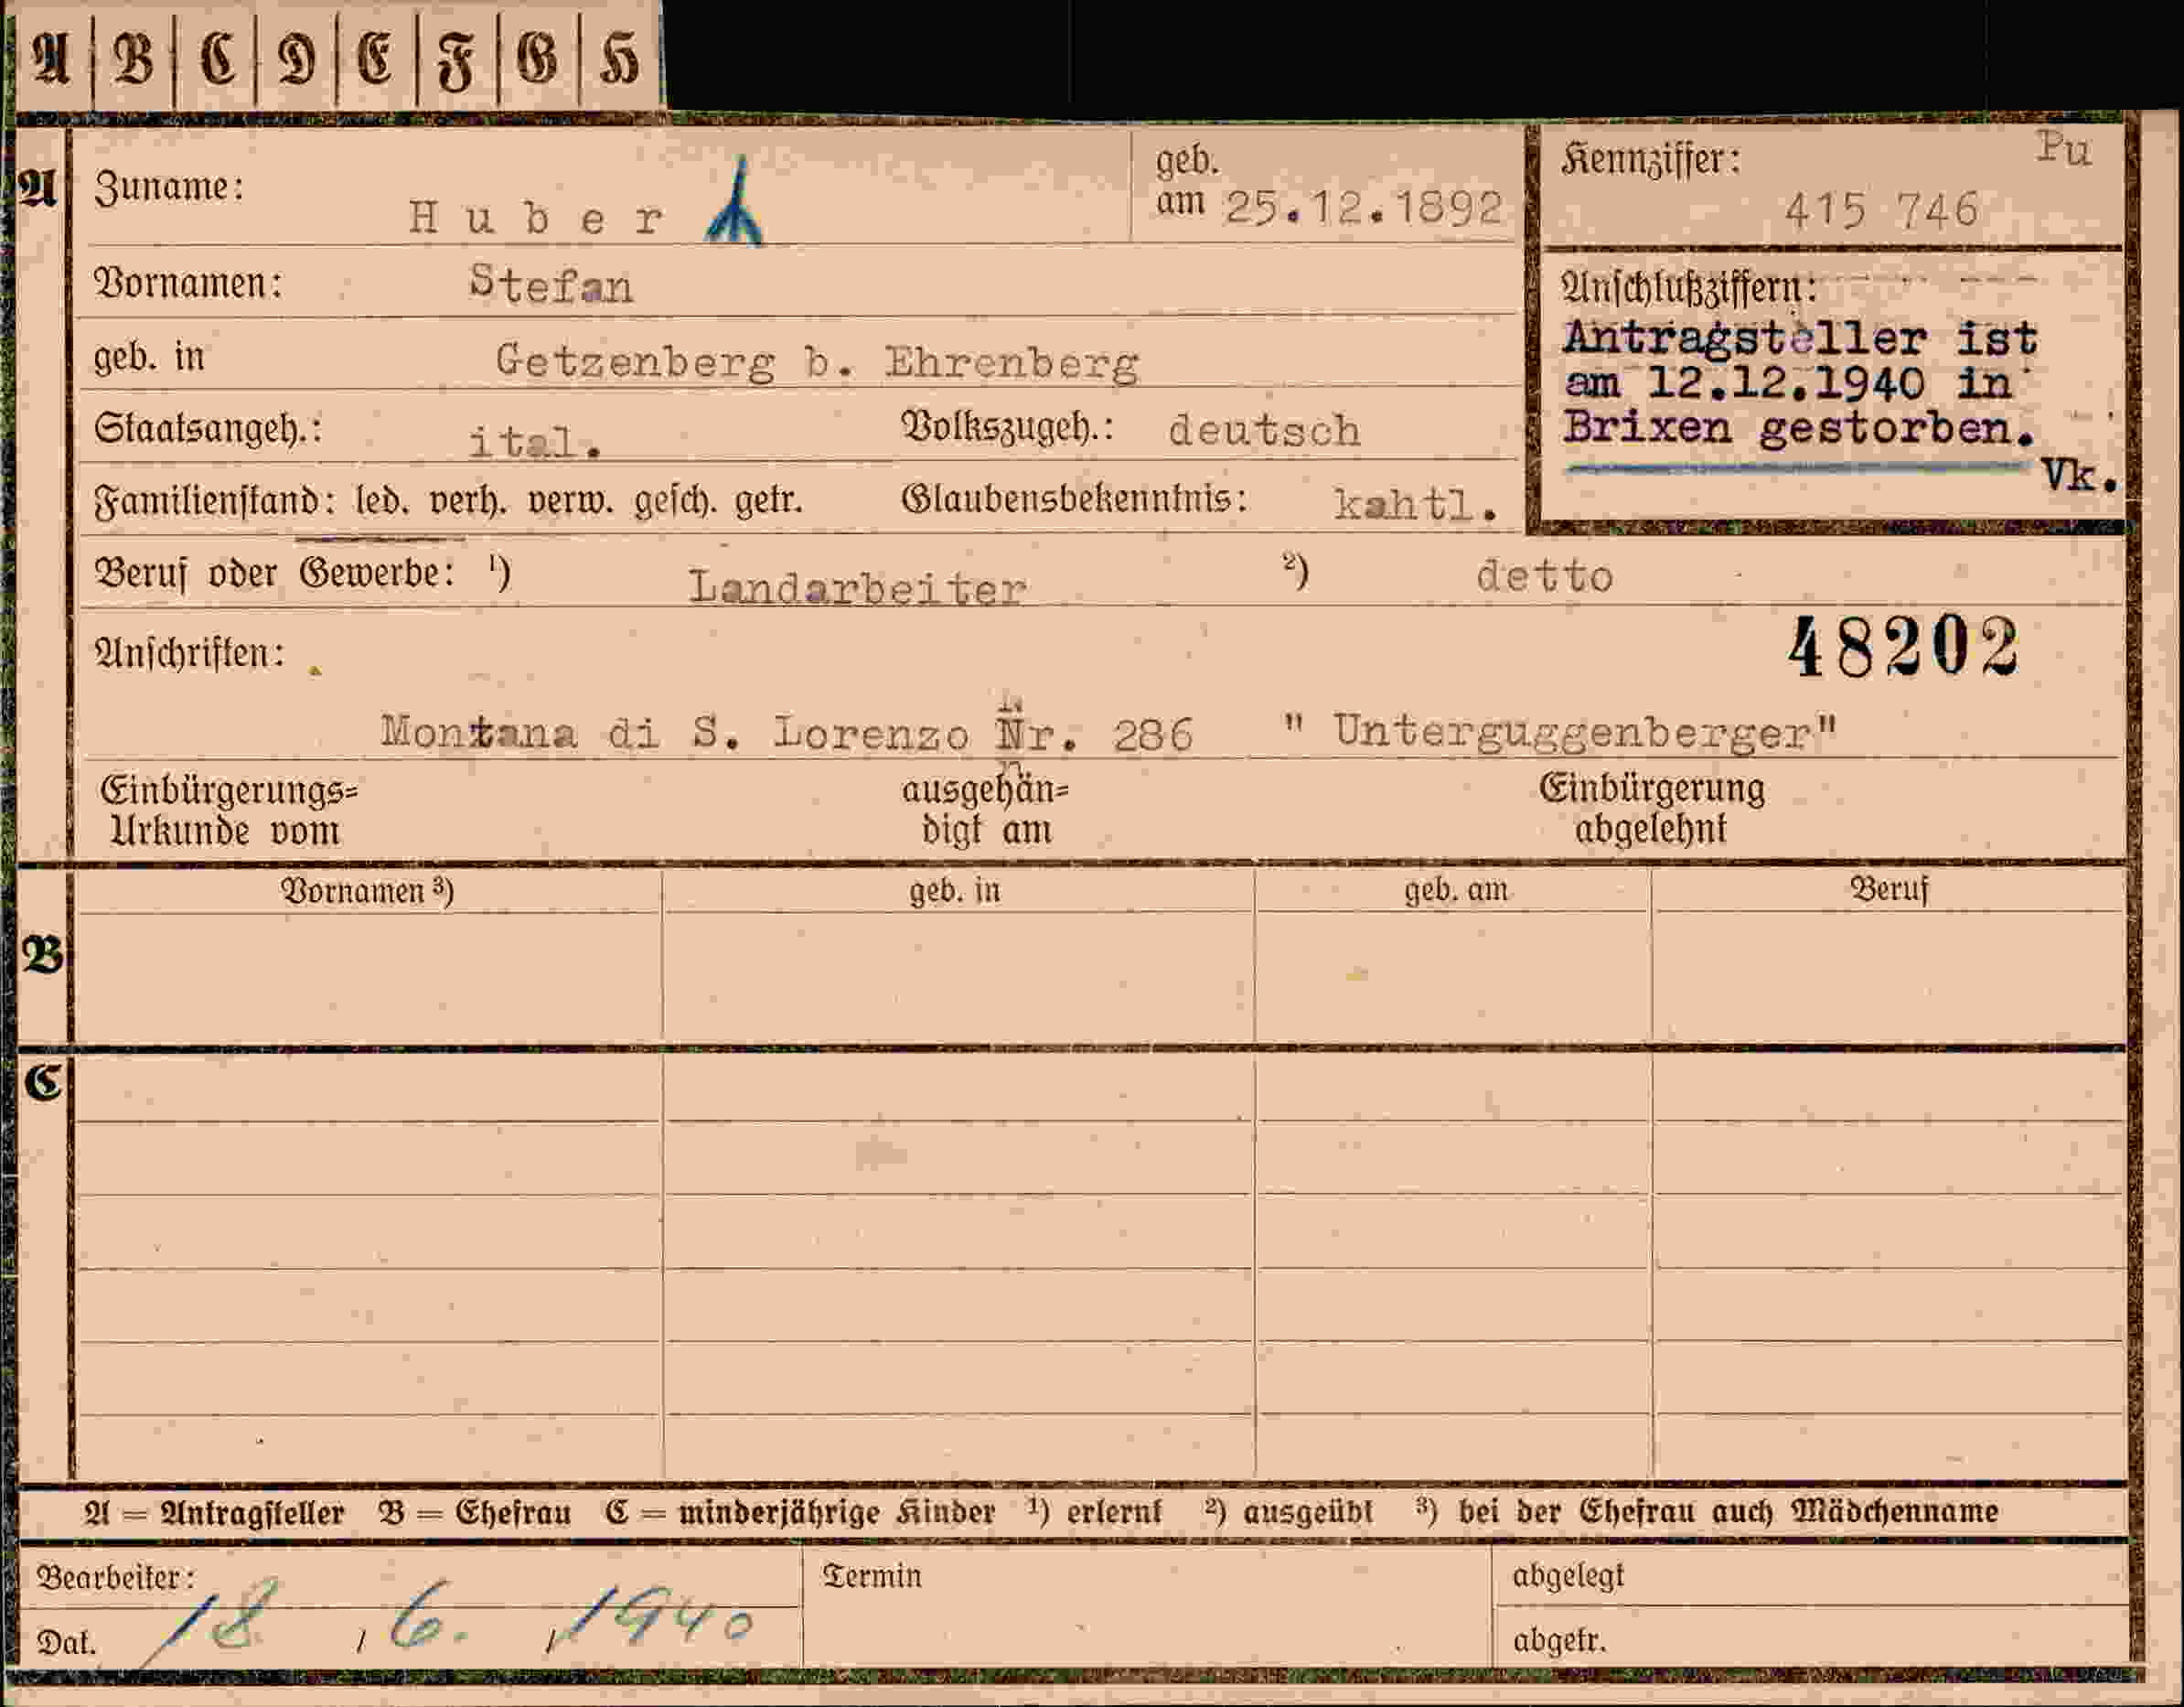 A B C D E F G H
A Zuname: Huber geb. am 25.12.1892
Kennziffer: Pu
415 746
Vornamen: Stefan
geb. in Getzenberg b. Ehrenberg
Staatsangeh.: ital. Volkszugeh.: deutsch
Familienstand: led. verh. verw. gesch. getr. Glaubensbekenntnis: kahtl.
Anschlußziffern:
Antragsteller ist
am 12.12.1940 in
Brixen gestorben.
Vk.
Beruf oder Gewerbe: ¹) Landarbeiter ²) detto
Anschriften: 48202
Montana di S. Lorenzo Nr. 286 " Unterguggenberger"
Einbürgerungs=
Urkunde vom
ausgehän=
digt am
Einbürgerung
abgelehnt
Vornamen ³) geb. in geb. am Beruf
B
C
A = Antragsteller B = Ehefrau C = minderjährige Kinder ¹) erlernt ²) ausgeübt ³) bei der Ehefrau auch Mädchenname
Bearbeiter: Termin abgelegt
Dat. 18 / 6. / 1940 abgetr.